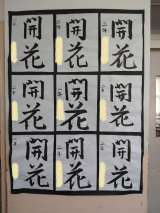 開花
開花
開花
開花
開花
開花
開花
開花
開花